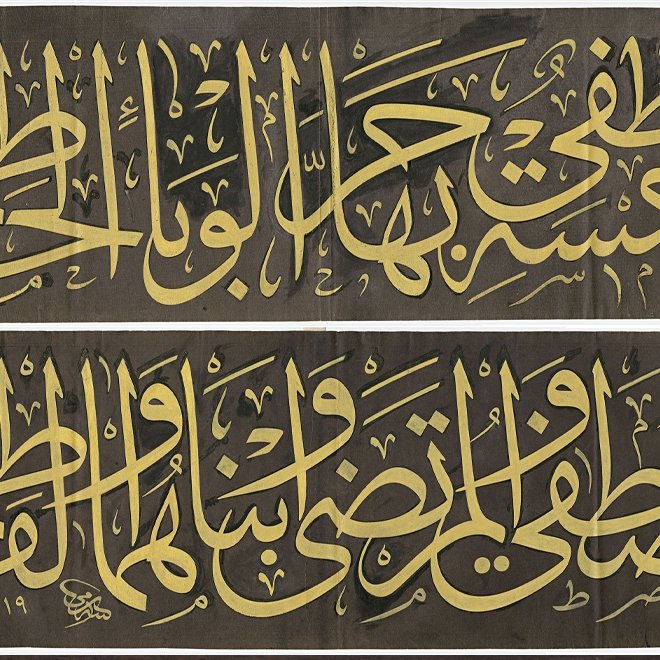 سة طفي بها حر الوباء الحاط
صطفى والمرتضى وابناهما والفاط
١٩